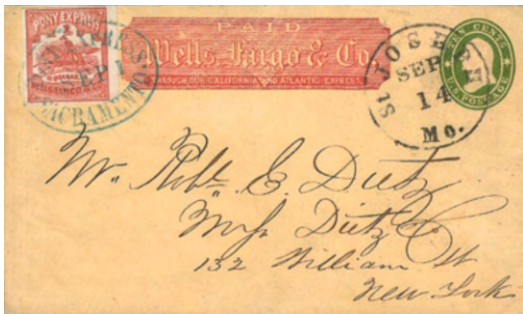 PONY EXPRESS
PONY EXPRESS
SEP 1
SACRAMENTO
PAID
Wells, Fargo & Co.
THROUGH OUR CALIFORNIA AND ATLANTIC EXPRESS
ST JOSEPH
SEP
14
Mo.
TEN CENTS
U.S. POSTAGE
Mr. Robt. E. Dietz
Messrs Dietz & Co
132 William St
New York